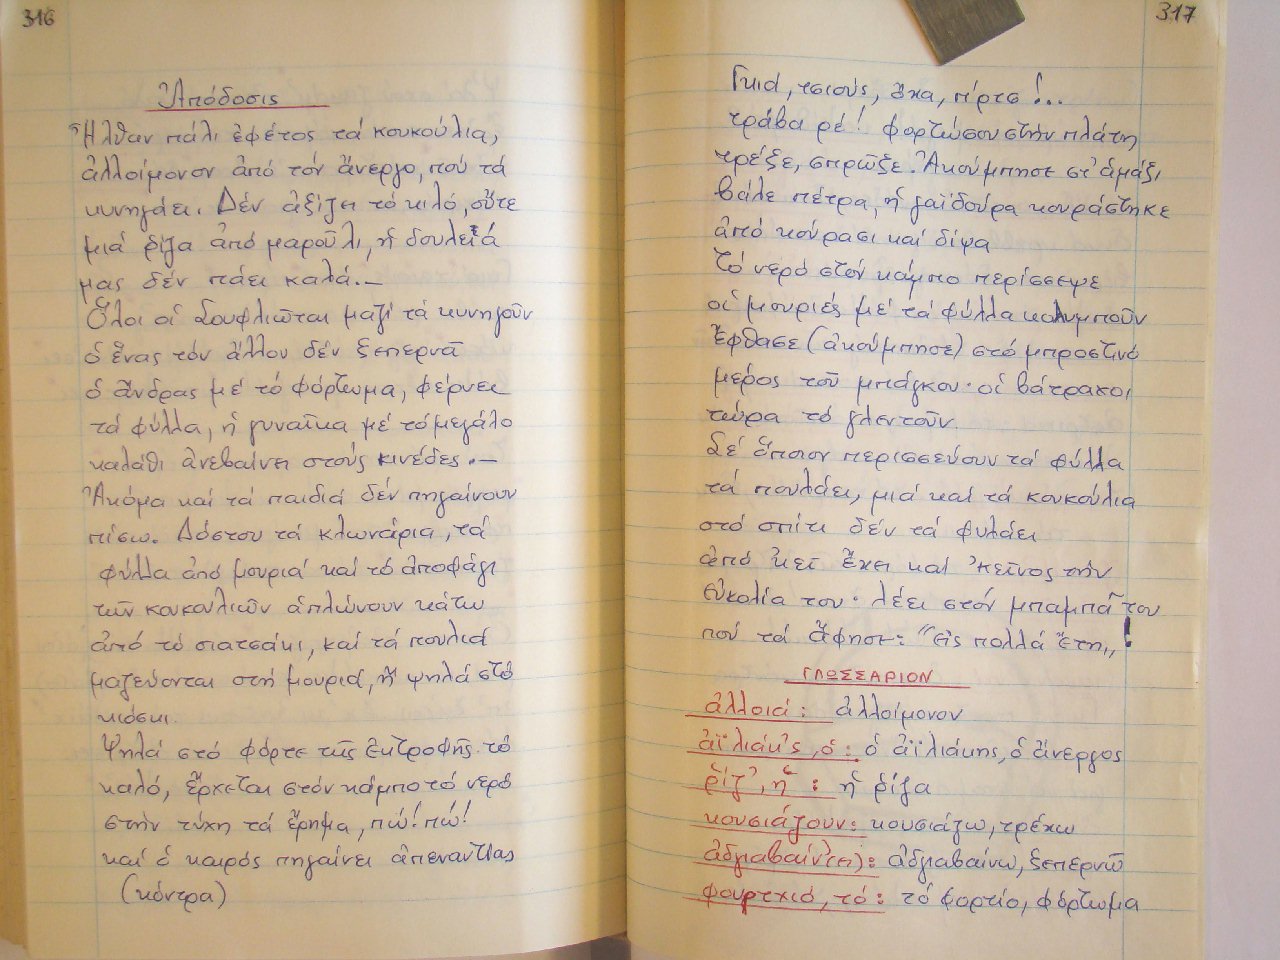 316
Ἀπόδοσις
Ἦλθαν πάλι ἐφέτος τά κουκούλια,
ἀλλοίμονον ἀπό τόν ἄνεργο, πού τά
κυνηγάει. Δέν ἀξίζει τό κιλό, οὔτε
μιά ρίζα ἀπό μαρούλι, ἡ δουλειά
μας δέν πάει καλά.—
Ὅλοι οἱ Σουφλιῶται μαζί τά κυνηγοῦν
ὁ ἕνας τόν ἄλλον δέν ξεπερνᾶ
ὁ ἄνδρας μέ τό φόρτωμα, φέρνει
τά φύλλα, ἡ γυναῖκα μέ τό μεγάλο
καλάθι ἀνεβαίνει στούς κινέδες.—
Ἀκόμα καί τά παιδιά δέν πηγαίνουν
πίσω. Δόστου τά κλωνάρια, τά
φύλλα ἀπό μουριά καί τό ἀποφάγι
τῶν κουκουλιῶν ἁπλώνουν κάτω
ἀπό τό σιατσάκι, καί τά πουλιά
μαζεύονται στή μουριά, ἤ ψηλά στό
κιόσκι.
Ψηλά στό φόρτε τῆς ἐκτροφῆς τό
καλό, ἔρχεται στόν κάμπο τό νερό
στήν τύχη τά ἔρημα, πώ! πώ!
καί ὁ καιρός πηγαίνει ἀπεναντίας
(κόντρα)
317
Γκιά, τσιούς, ἄχα, πίρτσ!...
τράβα ρέ! φορτώσου στήν πλάτη
τρέξε, σπρῶξε. Ἀκούμπησε στ' ἀμάξι
βάλε πέτρα, ἡ γαϊδούρα κουράστηκε
ἀπό κούρασι καί δίψα
τό νερό στόν κάμπο περίσσεψε
οἱ μουριές μέ τά φύλλα κολυμποῦν
Ἔφθασε (ἀκούμπησε) στό μπροστινό
μέρος τοῦ μπάγκου· οἱ βάτραχοι
τώρα τό γλεντοῦν.
Σέ ὅποιον περισσεύουν τά φύλλα
τά πουλάει, μιά καί τά κουκούλια
στό σπίτι δέν τά φυλάει
ἀπό κεῖ ἔχει καί 'κεῖνος τήν
εὐκολία του· λέει στόν μπαμπᾶ του
πού τά ἄφησε: "εἰς πολλά ἔτη"!
ΓΛΩΣΣΑΡΙΟΝ
ἀλλοιά: ἀλλοίμονον
ἀϊλιάκ'ς, ὁ: ὁ ἀϊλιάκης, ὁ ἄνεργος
ρίζ', ἡ: ἡ ρίζα
κουσιάζουν: κουσιάζω, τρέχω
ἀδγιαβαίν(ει): ἀδγιαβαίνω, ξεπερνῶ
φουρτχιό, τό: τό φορτίο, φόρτωμα